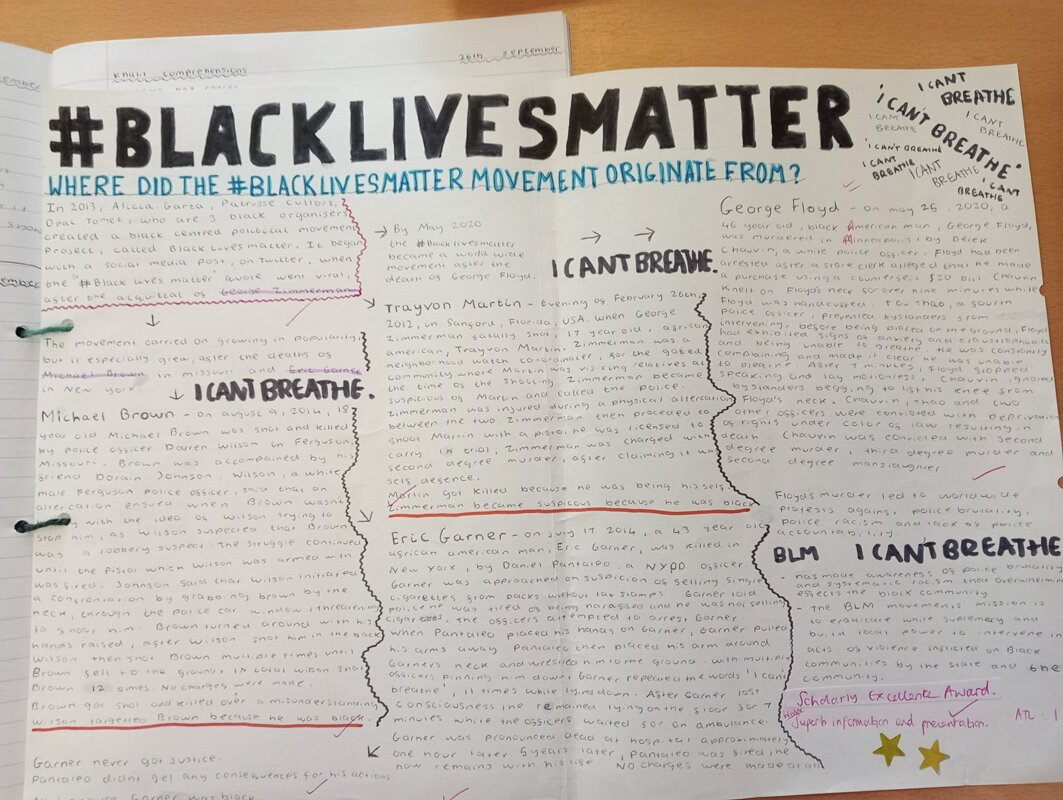 Khalil comprehensions
26th September
#BLACKLIVESMATTER
WHERE DID THE #BLACKLIVESMATTER MOVEMENT ORIGINATE FROM?
'I CAN'T BREATHE'
I CANT BREATHE
I CANT BREATHE
I CANT BREATHE
'I CAN'T BREATHE
I CANT BREATHE
I CANT BREATHE
'I CANT BREATHE
In 2013, Alicia Garza, Patrisse Cullors,
Opal Tometi, who are 3 black organisers
created a black centred political movement
Project, called Black Lives matter. It began
with a social media post, on Twitter, when
the "#Black lives matter" awole went viral,
after the acquittal of George Zimmermann
The movement carried on growing in popularity,
but it especially grew, after the deaths of
Michael Brown in missouri and Eric Garner
in New york
I CANT BREATHE.
Michael Brown - on august 9, 2014, 18
year old Michael Brown was shot and killed
by police officer Darren Wilson in Ferguson
Missouri. Brown was accompanied by his
friend Dorain Johnson. Wilson, a white
male Ferguson Police officer, said that an
altercation ensued when Brown wasn't
with the idea of Wilson trying to
stop him, as Wilson suspected that Brown
was a robbery suspect. The struggle continued
until the pistol which Wilson was armed with
was fired. Johnson said that Wilson initiated
a confrontation by grabbing brown by the
neck, through the police car window, threatening
to shoot him. Brown turned around with his
hands raised, after Wilson shot him in the back
Wilson then shot Brown multiple times until
Brown fell to the ground. In total Wilson shot
Brown 12 times. No charges were made.
Brown got shot and killed over a misunderstanding
Wilson targeted Brown because he was black.
Garner never got justice.
Pantaleo didnt get any consequences for his actions.
Garner was black.
By May 2020
the #Blacklivesmatter
became a world wide
movement after the
death of George Floyd.
I CANT BREATHE.
Trayvon Martin - Evening of February 26th,
2012, in Sanford, Florida, USA, when George
Zimmerman fatally shot, 17 year old, african
american, Trayvon Martin. Zimmerman was a
neighborhood watch co-ordinater, for the gated
community where Martin was visiting relatives at
the time of the shooting. Zimmerman became
suspicious of Martin and called the police.
Zimmerman was injured during a physical altercation
between the two. Zimmerman then proceded to
shoot Martin with a pistol he was licensed to
carry. In trial, Zimmerman was charged with
second degree murder, after claiming it was
self defence.
Martin got killed because he was being his self
Zimmerman became suspicious because he was black
Eric Garner - on July 17 2014, a 43 year old
african american man, Eric Garner, was killed in
New York, by Daniel Pantaleo, a NYPD officer.
Garner was approached on suspicion of selling single
cigarettes from packs without tax stamps. Garner told
police he was tired of being harassed and he was not selling
cigarettes. The officers attempted to arrest Garner
When Pantaleo placed his hands on Garner, Garner pulled
his arms away. Pantaleo then placed his arm around
Garners neck and wrestled him to the ground. with multiple
officers pinning him down, Garner repeated the words 'I can't
breathe', 11 times while lying down. After Garner lost
consciousness he remained lying on the floor for 7
minutes while the officers waited for an ambulance.
Garner was pronounced dead at hospital approximately
one hour later. 5 years later, Pantaleo was fired. He
now remains with his life. No charges were made at all
George Floyd - on may 25, 2020, a
46 year old, black American man, George Floyd,
was murdered in Minneapolis, by Derek
Chauvin, a white police officer. Floyd had been
arrested after a store clerk alleged that he made
a purchase using a counterfeit $20 bill. Chauvin
knelt on Floyd's neck for over nine minutes while
Floyd was handcuffed. Tou Thao, a fourth
police officer, prevented bystanders from
intervening. before being placed on the ground, Floyd
had exhibited signs of anxiety and claustrophobia
and being unable to breathe. He was constantly
complaining and made it clear he was unable
to breathe. After 7 minutes, Floyd stopped
speaking and lay motionless. Chauvin, ignored
bystanders begging to lift his knee from
Floyd's neck. Chauvin, Thao and two
other officers were convicted with Deprivation
of rights under color of law resulting in
death. Chauvin was convicted with second
degree murder, third degree murder and
second degree manslaughter.
Floyds murder led to worldwide
protests against, police brutality,
police racism and lack of police
accountability
BLM I CAN'T BREATHE
- has made awareness of police brutality
and systematic racism that overwhelmingly
effects the black community
- The BLM movements mission is
to eradicate white supremacy and
build local power to intervene
acts of violence inflicted on Black
communities by the state and the
community.
Scholarly Excellence Award.
Superb information and presentation.
ATL: 1